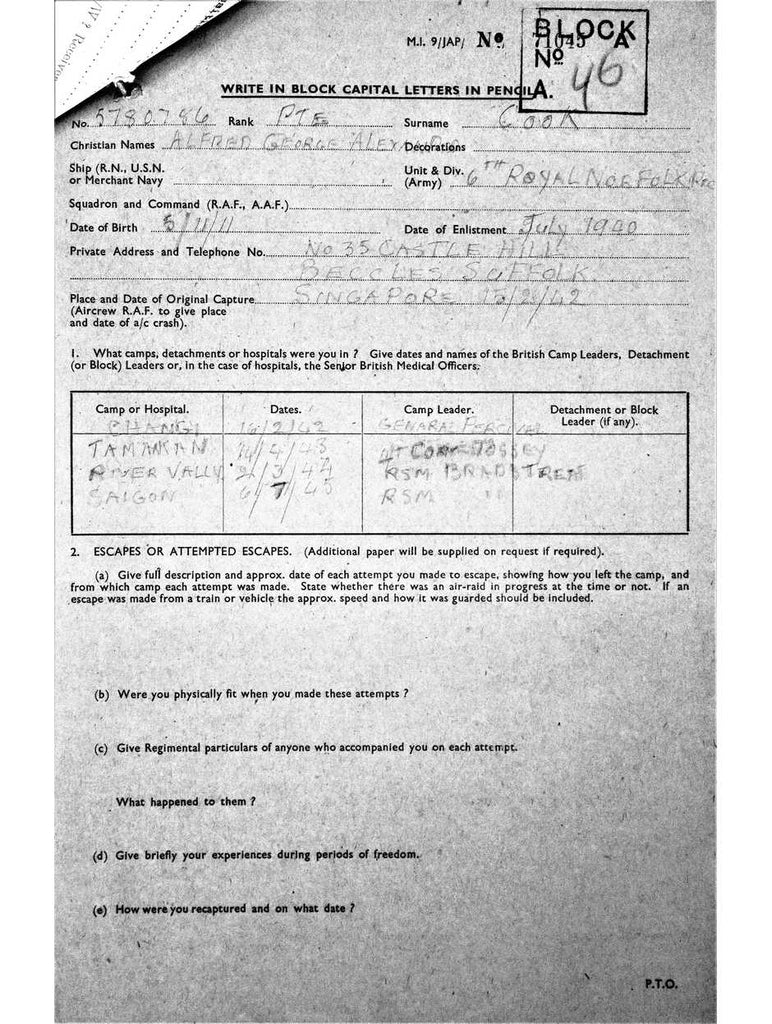 W? Receive
M.I. 9/JAP/ No. 71045 A
BLOCK
No
A. 46
WRITE IN BLOCK CAPITAL LETTERS IN PENCIL
No. 5780786 Rank PTE Surname COOK
Christian Names ALFRED GEORGE Decorations
Ship (R.N., U.S.N.
or Merchant Navy
Unit & Div.
(Army) 6TH ROYAL NORFOLK
Squadron and Command (R.A.F., A.A.F.)
Date of Birth 5/11/11 Date of Enlistment July 1940
Private Address and Telephone No. No 35 CASTLE HILL
BECCLES SUFFOLK
Place and Date of Original Capture SINGAPORE 15/2/42
(Aircrew R.A.F. to give place
and date of a/c crash).
1. What camps, detachments or hospitals were you in ? Give dates and names of the British Camp Leaders, Detachment
(or Block) Leaders or, in the case of hospitals, the Senior British Medical Officers.
Camp or Hospital. Dates. Camp Leader. Detachment or Block
Leader (if any).
CHANGI 2/42 GENARAL
TAMAKAN 4/43
RIVER VALLY 3/44 RSM
SAIGON 6/7/45 RSM "
2. ESCAPES OR ATTEMPTED ESCAPES. (Additional paper will be supplied on request if required).
(a) Give full description and approx. date of each attempt you made to escape, showing how you left the camp, and
from which camp each attempt was made. State whether there was an air-raid in progress at the time or not. If an
escape was made from a train or vehicle the approx. speed and how it was guarded should be included.
(b) Were you physically fit when you made these attempts ?
(c) Give Regimental particulars of anyone who accompanied you on each attempt.
What happened to them ?
(d) Give briefly your experiences during periods of freedom.
(e) How were you recaptured and on what date ?
P.T.O.